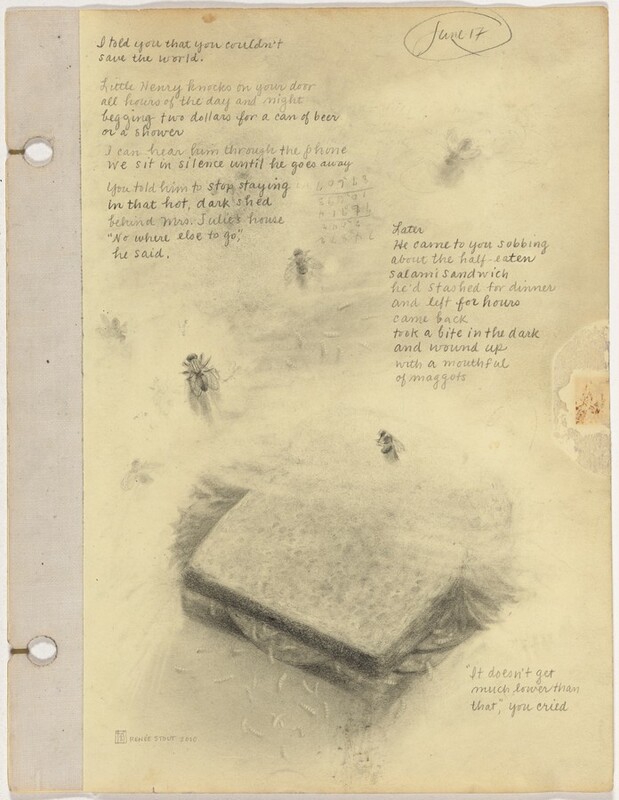 June 17
I told you that you couldn't
save the world.
Little Henry knocks on your door
all hours of the day and night
begging two dollars for a can of beer
or a shower
I can hear him through the phone
we sit in silence until he goes away
You told him to stop staying
in that hot, dark shed
behind Mrs. Julie's house
"No where else to go,"
he said.
Later
He came to you sobbing
about the half-eaten
salami sandwich
he'd stashed for dinner
and left for hours
came back
took a bite in the dark
and wound up
with a mouthful
of maggots
"It doesn't get
much lower than
that", you cried
RENÉE STOUT